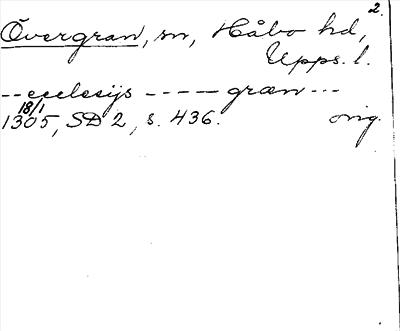 2.
Övergran, sn, Håbo hd,
Upps. l.
-- ecclesijs ---- græn ---
18/1
1305, SD 2, s. 436. orig.